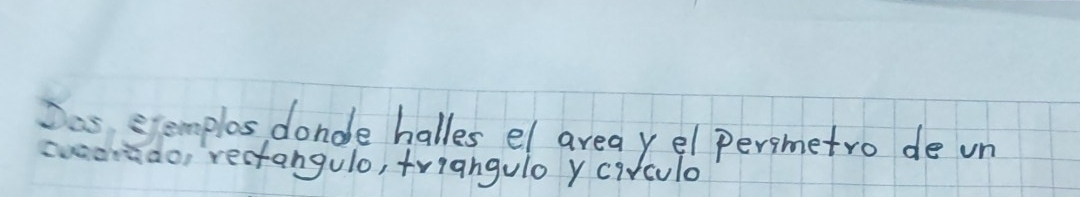 Dos, ejemplos donde halles el area y el perimetro de un
cuadrado, rectangulo, triangulo y circulo